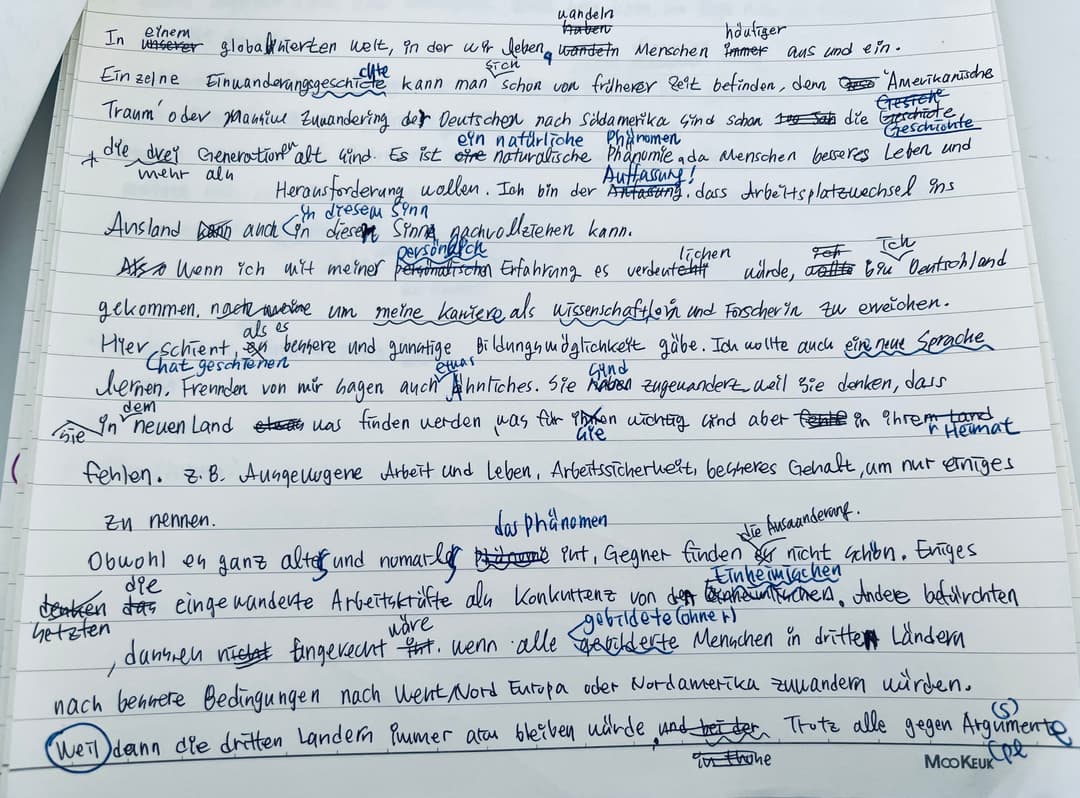 wandeln
In einem unserer globalisierten welt, in der wir leben, haben wandeln Menschen häufiger immer aus und ein.
Einzelne Einwanderungsgeschicte chte kann man sich schon von früherer Zeit befinden, denn "Amerikanische
Traum" oder massive Zuwandering der Deutschen nach Südamerika sind schon die Geschichte
* die drei mehr als Generationen alt sind. Es ist eine naturalische Phänomie, da Menschen besseres Leben und
ein natürliche Phänomen
Herausforderung wollen. Ich bin der Auffassung! dass Arbeitsplatzwechsel ins
Ausland kann auch in diesem Sinn in diesem Sinne nachvollziehen kann.
Also Wenn ich mit meiner persönlich personalischen Erfahrung es verdeutlichen würde, ich wollte bin Ich Deutschland
gekommen, nach meine um meine karriere als wissenschaftlerin und Forscherin zu erreichen.
Hier schient, es als es bessere und gunstige Bildungsmöglichkeit gäbe. Ich wollte auch eine neue Sprache
(hat geschienen
lernen. Freunden von mir sagen auch etwas Ähnliches. Sie haben sind zugewandert weil sie denken, dass
sie in dem neuen Land etwas was finden werden was für ihnen sie wichtig sind aber fehlt in ihrem Land r Heimat
fehlen. z.B. Ausgewogene Arbeit und Leben, Arbeitssicherheit, besseres Gehalt, um nur einiges
zu nennen.
das Phänomen die Auswanderung.
Obwohl es ganz altes und normales ist, Gegner finden nicht schön. Einiges
denken hetzten das die eingewanderte Arbeitskräfte als Konkurrenz von den Einheimischen. Andere befürchten
, dass es nicht Eingerecht ist wäre. wenn alle gebildete (ohne r) gebilderte Menschen in dritten Ländern
nach bessere Bedingungen nach West/Nord Europa oder Nordamerika zuwandern würden.
Weil dann die dritten Landern immer arm bleiben würde, und bei der Trotz alle gegen Argumente
(s)
(pl
MOOKEUK